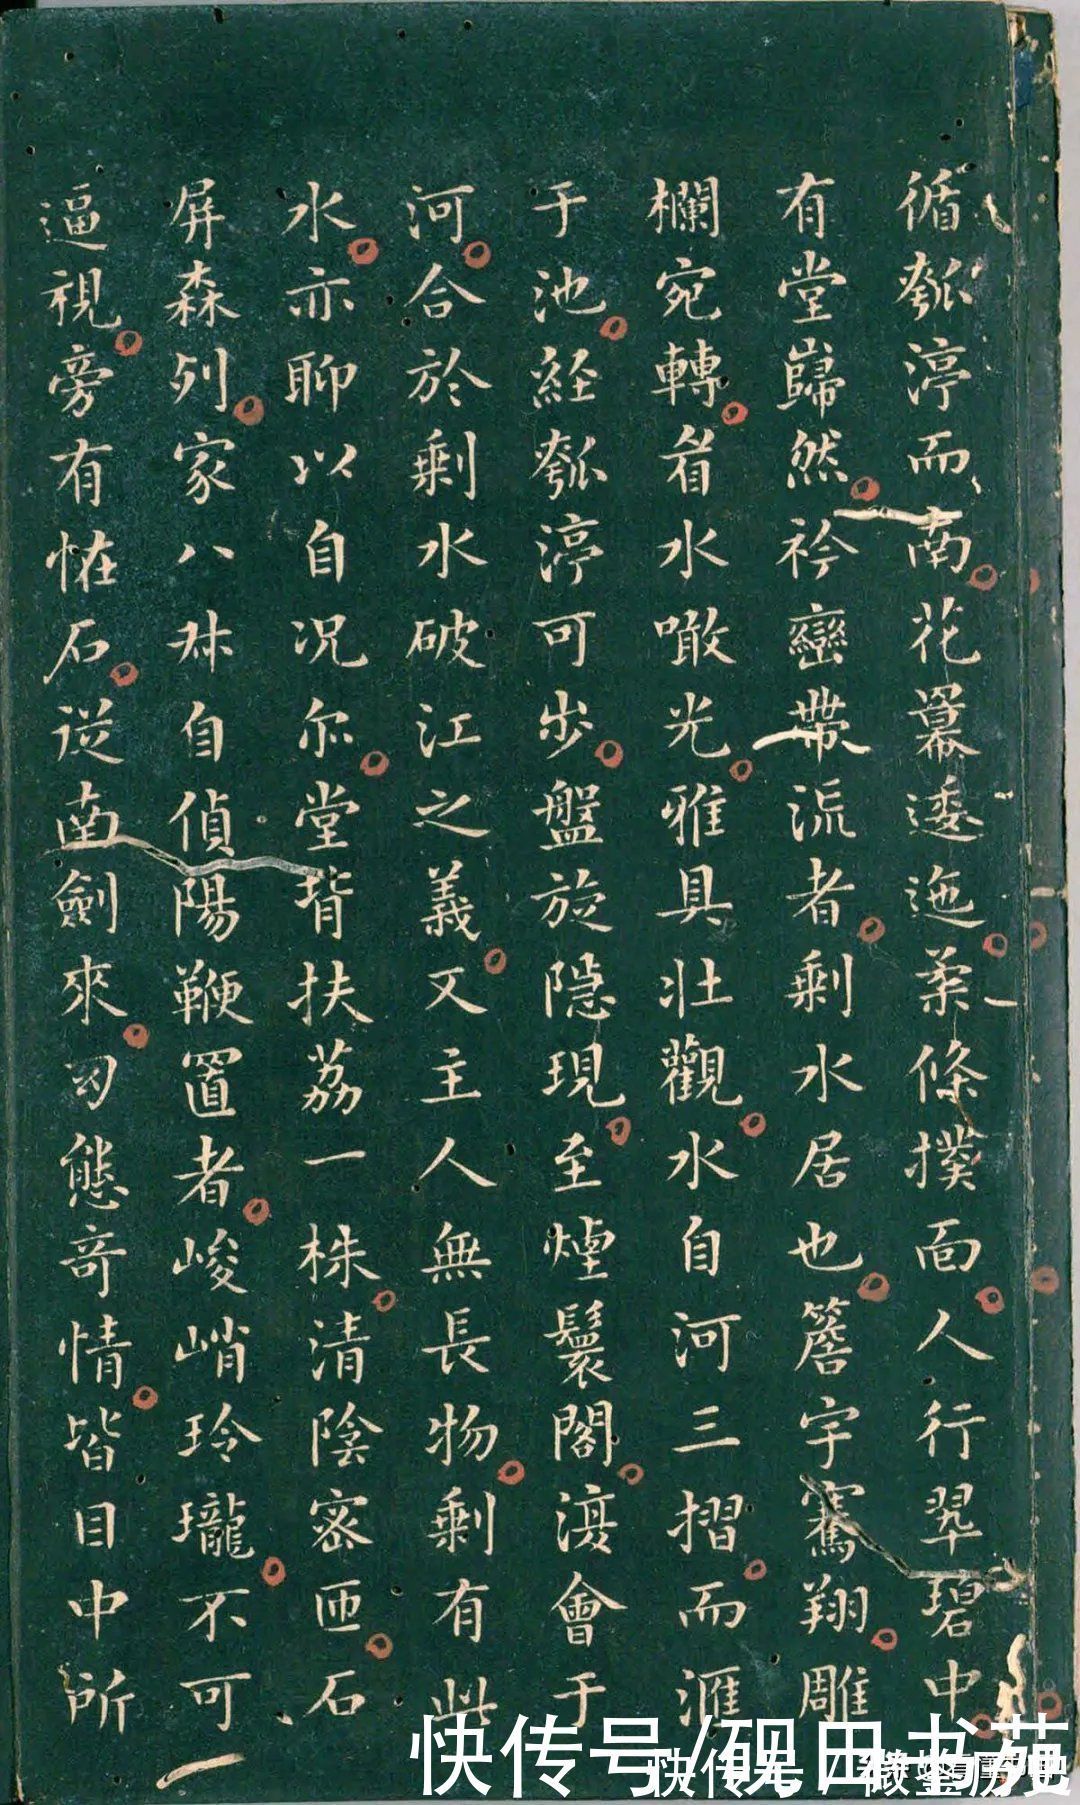 循瓠渟而南花羃逶迤柔條撲面人行翠碧中
有堂巋然衿巒帶流者剩水居也簷宇騫翔雕
欄宛轉看水噉光雅具壯觀水自河三摺而滙
于池經瓠渟可步盤旋隱現至煙鬟閣復會于
河合於剩水破江之義又主人無長物剩有此
水亦聊以自況尔堂背扶荔一株清陰密匝石
屏森列家八叔自偵陽鞭置者峻峭玲瓏不可
逼視旁有恠石從南劍來幻態奇情皆目中所
快传号/砚田书苑
快传号